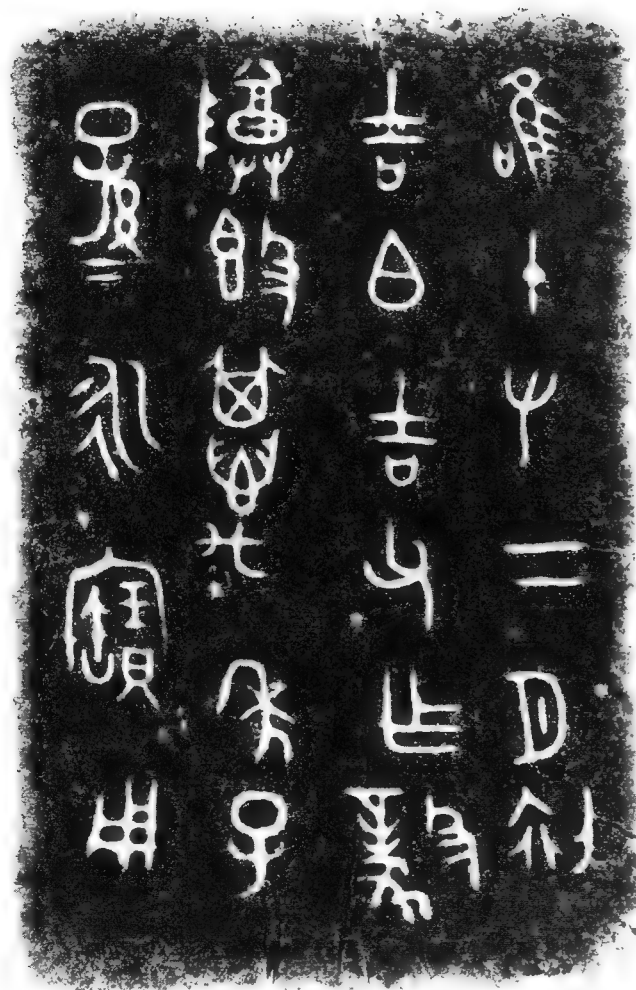 唯十又二月初
吉白吉父乍毅
𬯚𣪘其萬年子
孫＝永寶用